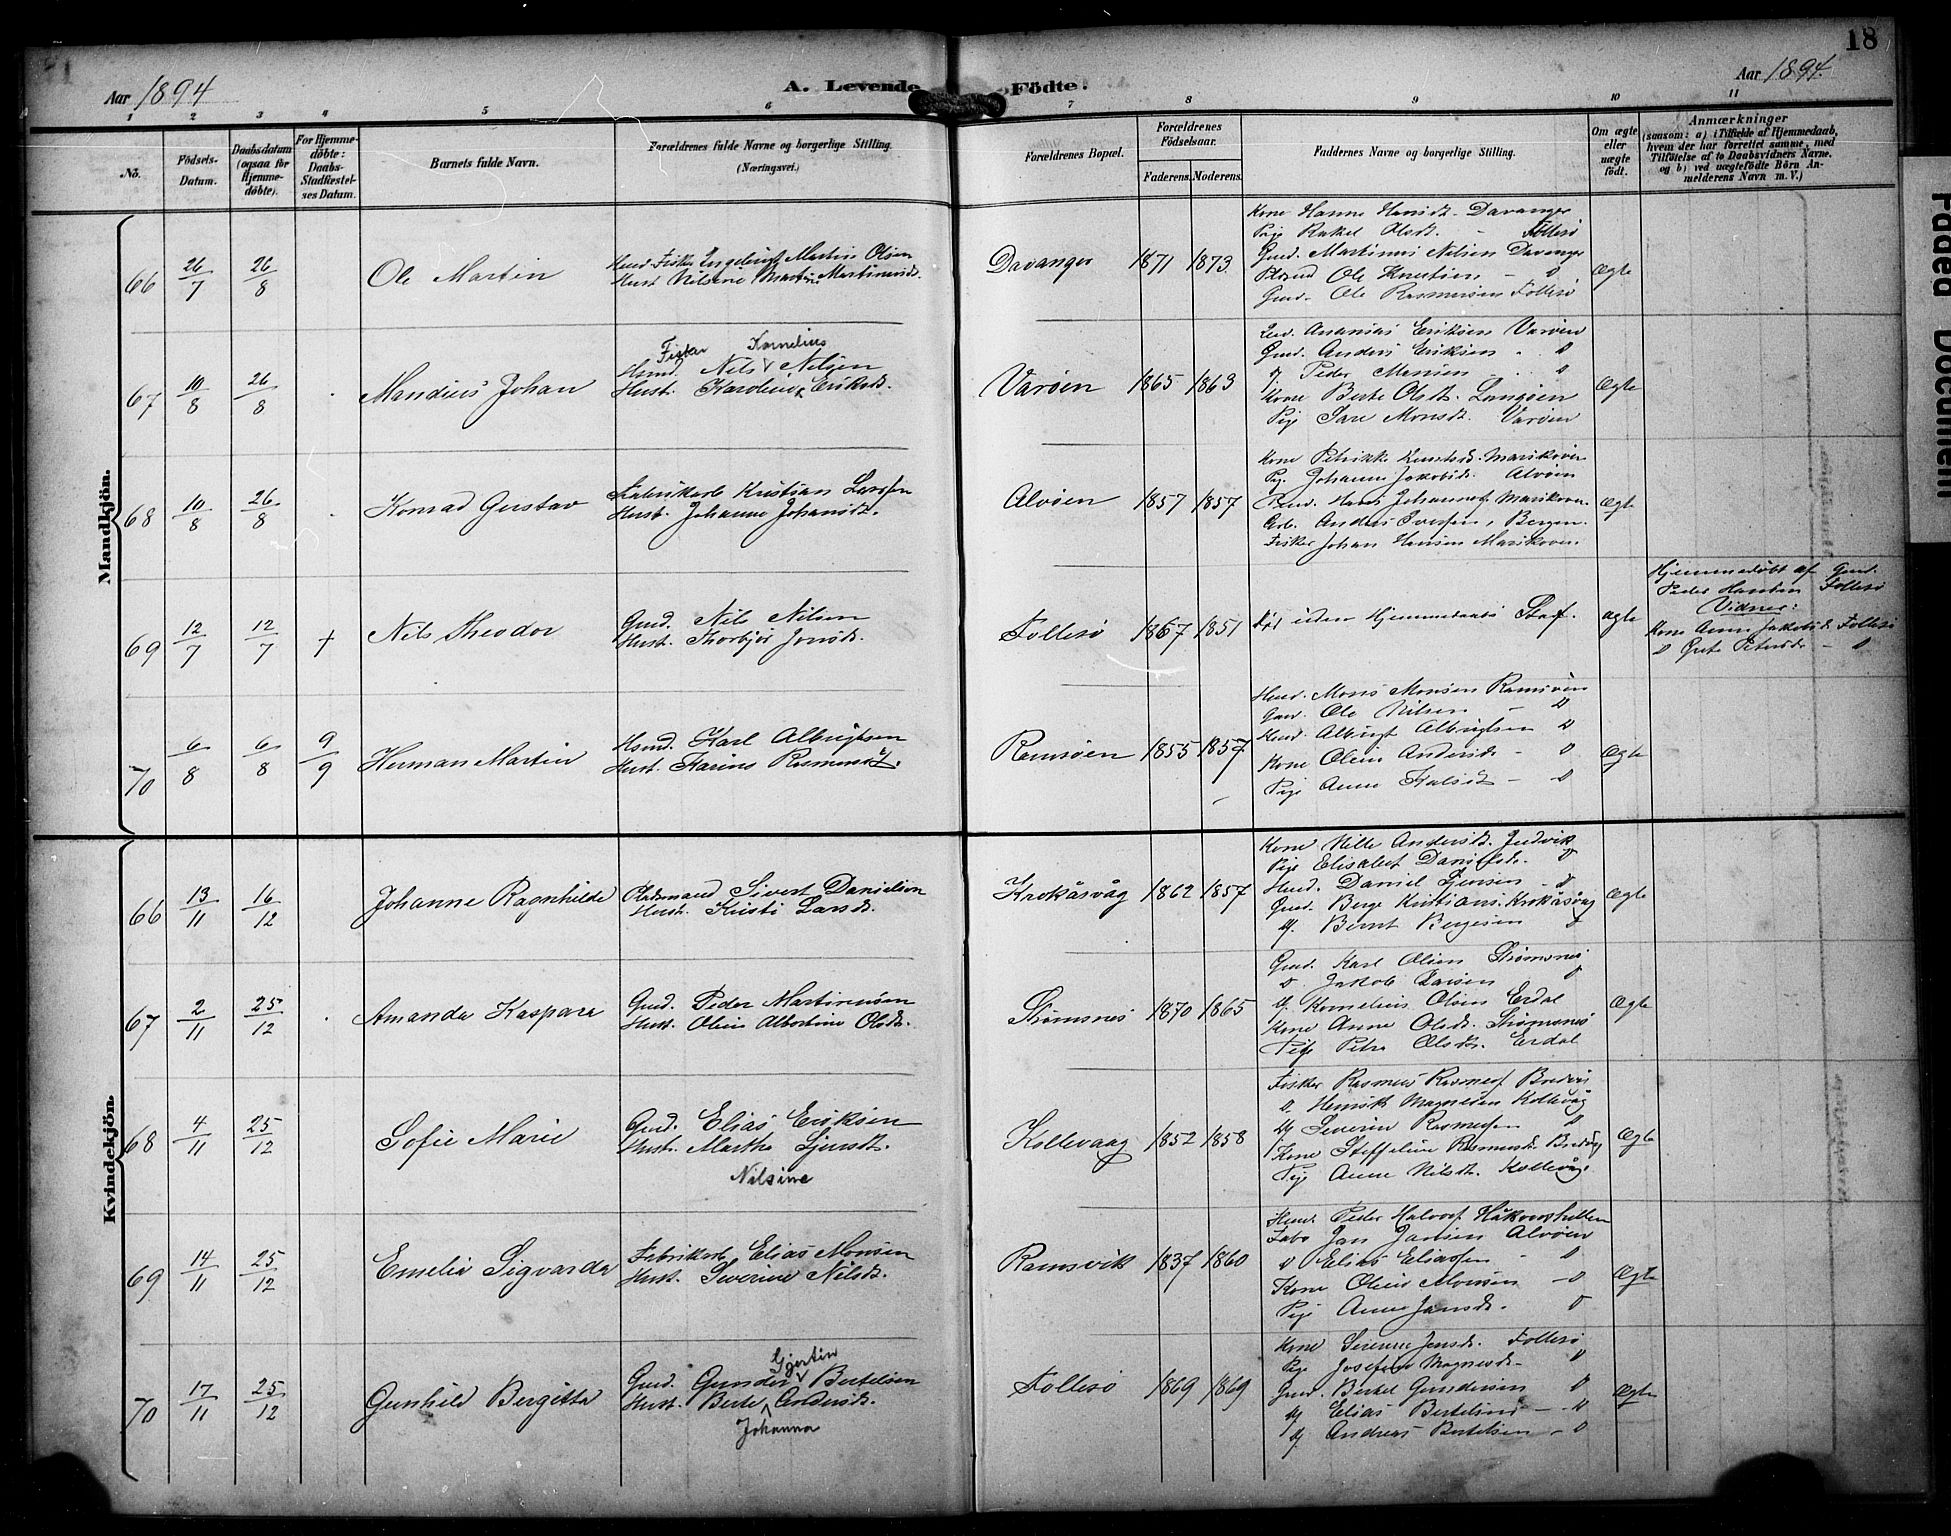 18
Aar 1894
A. Levende Födte.
Aar 1894.
1 2 3 4 5 6 7 8 9 10 11
No.
Födsels-Datum.
Daabsdatum (ogsaa for Hjemme-döbte).
For Hjemme-döbte: Daabs-Stadfæstel-ses Datum.
Barnets fulde Navn.
Forældrenes fulde Navne og borgerlige Stilling.
(Næringsvei.)
Forældrenes Bopæl.
Forældrenes Födselsaar.
Faderens. Moderens.
Faddernes Navne og borgerlige Stilling.
Om ægte eller uægte födt.
Anmærkninger
(saasom: a) i Tilfælde af Hjemmedaab, hvem der har forrettet samme, med Tilföielse af to Daabsvidners Navne. og b) ved uægtefödte Börn An-melderens Navn m. V.)
Mandkjön.
66 26/7 26/8 Ole Martin
Fisker Ingebrigt Martin Olsen
Hust. Nilsine Martine Martinusd.
Davanger 1871 1873 Ægte
Kone Hanne Hansdt. Davanger
Pige Rakel Olsdt. - Follesø
Gmd. Martinus Nilsen Davanger
Ole Knutsen - D
Gmd. Ole Rasmusen Follesø
67 10/8 26/8 Mandius Johan
Fisker Kornelius
Hsmd. Nils Nilsen
Hust. Karoline Eriksd.
Varøen 1865 1863 Ægte
Ananias Eriksen Varøen
Gmd. Anders Eriksen - D
Peder Monsen - D
Kone Berte Olsdt. Langøen
Pige Sare Monsdt. Varøen
68 10/8 26/8 Konrad Gustav
Fabrikarb. Kristian Larsen
Hust. Johanne Johansdt.
Alvøen 1857 1857 Ægte
Kone Petrikke Knutsd. Marikoven
Pig. Johanne Jakobsd. Alvøen
Hans Johannes. Marikoven
Arb. Anders Iversen, Bergen.
Fisker Johan Hansen Marikoven.
69 12/7 12/7 + Nils Theodor
Gmd. Nils Nilsen
Hust. Thorbjør Jonsd.
Follesø 1867 1851
Død uden Hjemmedaabs Staf.
ægte
Hjemmedøbt af Gmd.
Peder Hansen Follesø
Vidner:
Kone Anne Jakobsd. Follesø
D Grete Petersd. - D
70 6/8 6/8 9/9 Herman Martin
Hsmd. Karl Albrigtsen
Hust. Karine Rasmusdt.
Ramsøen 1855 1857 Ægte
Hsmd. Mons Monsen Ramsøen
Gmd. Ole Nilsen - D
Hsmd. Albrigt Albrigtsen D
Kone Oline Andersd. - D
Pige Anne Karlsdt. - D
Kvindekjön.
66 13/11 16/12 Johanne Ragnhilde
Pladsmand Sivert Danielsen
Hust. Kristi Larsd.
Krokåsvåg 1862 1857 Ægte
Kone Nille Andersd. Juvik
Pige Elisabet Danielsd. D
Hsmd. Daniel - D
Gmd. Berge Kristians. Krokåsvåg
Bernt Bergesen D
67 2/11 25/12 Amanda Kaspara
Gmd. Peder Martinusen
Hust. Oline Albertine Olsd.
Strømsnes 1870 1865 Ægte
Gmd. Karl Olsen Strømsnes
D Jakob Larsen D
Kornelius Olsen Erdal
Kone Anne Olsd. Strømsnes
Pige Petra Olsd. Erdal
68 4/11 25/12 Sofie Marie
Gmd. Elias Eriksen
Hust. Martha
Nilsine
Kollevaag 1852 1858 Ægte
Fisker Rasmus Rasmus.
D Henrik Magnesen Kollevåg
Severin Rasmusen D
Kone Steffeline Rasmusd.
Pige Anne Nilsdt. Kollevåg.
69 14/11 25/12 Emelia Sigvarda
Fabrikarb. Elias Monsen
Hust. Severine Nilsd.
Ramsvik 1837 1860 Ægte
Hsmd. Peder Håkonshellen
Fabr. Jan Jansen Alvøen
D Elias Eliassen - D
Kone Oline Monsen - D
Pige Anne Jansd. D
70 17/11 25/12 Gunhild Bergitta
Gjertin
Gmd. Gunder Bertelsen
Hust. Berte Andersd.
Johanna
Follesø 1869 1869 Ægte
Kone Serine Jensd. Follesø
Pige Josefine Magnesd. - D
Gmd. Berkel Gundersen D
Elias Bertelsen - D
Andreas Bertelsen - D
Faded Document